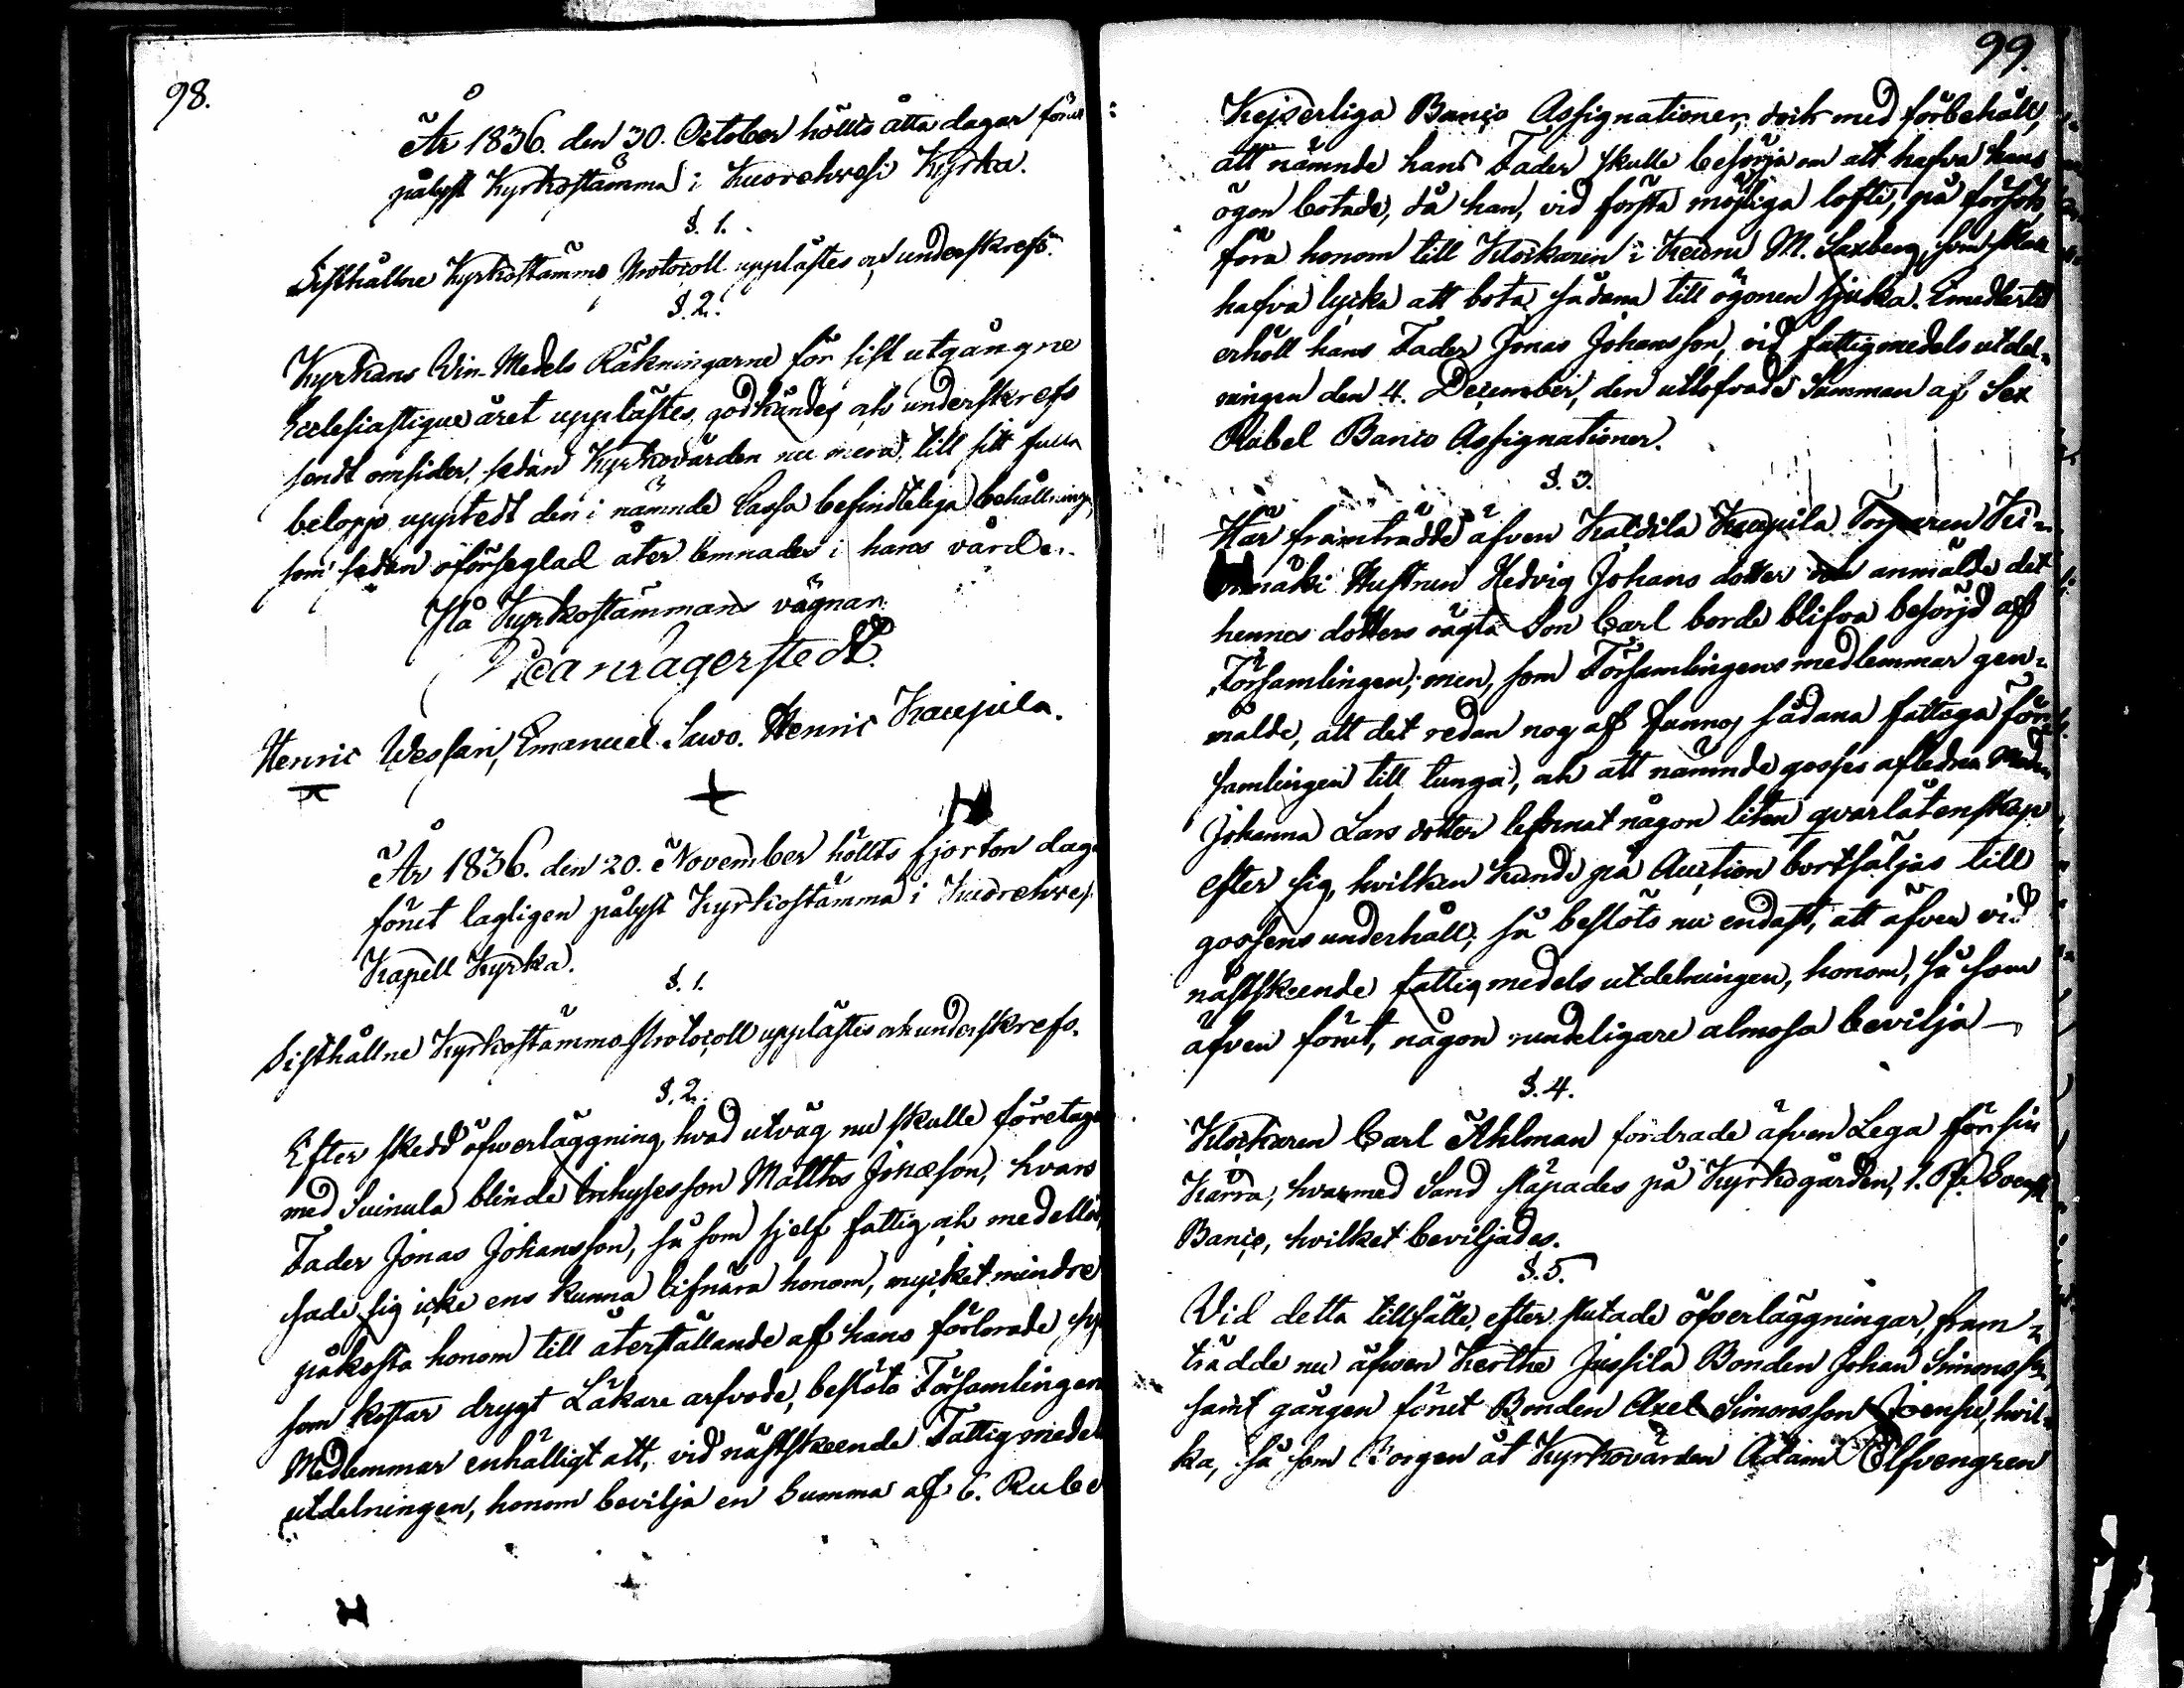 98.
År 1836. den 30. October hölts åtta dagar förut
pålyst Kyrkostämma i Kuorehvesi Kyrka.
§. 1.
Sisthållne Kyrkostämmo Protocoll upplästes och underskrefs.
§. 2.
Kyrkans Vin-Medels Räkningarne för sist utgångne
Ecclesiastique året upplästes, godkändes och underskrefs
sendt omsider, sedan Kyrkovärden nu mera till sitt fulla
belopp upptedt den i nämnde Cassa befindteliga behållning,
som sedan oförseglad åter lemnades i hans vård.
På Kyrkostämmans vägnar
Henric Wessari, Emanuel Sawo. Henric Kaupila.
År 1836. den 20. November hölts fjorton dagar
förut lagligen pålyst Kyrkostämma i Kuorehvesi
Kapell Kyrka.
§. 1.
Sisthållne Kyrkostämmo-Protocoll upplästes och underskrefs.
§. 2.
Efter skedd öfverläggning, hvad utväg nu skulle företagas
med Suinula blinde Inhysesson Matths Jonæson, hvars
Fader Jonas Johansson, så som sjelf fattig och medellös,
sade sig icke ens kunna lifnära honom, mycket mindre
påkosta honom till återställande af hans förlorade syn
som kostar drygt Läkare arfvode, beslöts Församlingens
Medlemmar enhälligt att, vid nästskeende Fattigmedels
utdelningen, honom bevilja en Summa af 6. Rubel
99.
Kejserliga Banco Assignationer, dock med förbehåll,
att nämnde hans Fader skulle besörja om att hafva hans
ögon botade, då han, vid första möjliga lofti, på försök,
föra honom till Klockaren i Keuru M. Saxberg, som skall
hafva lycka att bota sådana till ögonen sjuka. Emedlertid
erhöll hans Fader Jonas Johansson, vid fattigmedels utdel-
ningen den 4. December, den utlofvade Summan af Sex
Rubel Banco Assignationer.
§. 3.
Här framträdde äfven Kaldila Kaupila Torparen Ki-
mäki Hustrun Hedvig Johans dotter och anmälde det
hennes dotters oägta Son Carl borde blifva besörjd af
Församlingen; men, som Församlingens medlemmar gen-
mälde, att det redan nog af funnos sådana fattiga För-
samlingen till tunga, och att nämnde gosses afledna Moder
Johanna Lars dotter lefvnat någon liten qvarlåtenskap
efter sig, hvilken kunde på Auction bortsäljas till
gossens underhåll; så beslöts nu endast, att äfven vid
nästskeende fattigmedels utdelningen, honom, så som
äfven förut, någon undeligare almosa bevilja
§. 4.
Klockaren Carl Åhlman fordrade äfven Lega för sin
Kärra, hvarmed Sand släpades på Kyrkogården, 1. Rd. Svenskt
Banco, hvilket beviljades.
§. 5.
Vid detta tillfälle, efter slutade öfverläggningar, fram-
trädde nu äfwen Kerthe Jussila Bonden Johan Simonsson,
samt gången förut Bonden Axel Simonsson Joensu, hvil-
ka, så som Borgen åt Kyrkovärden Adam Elfvengren